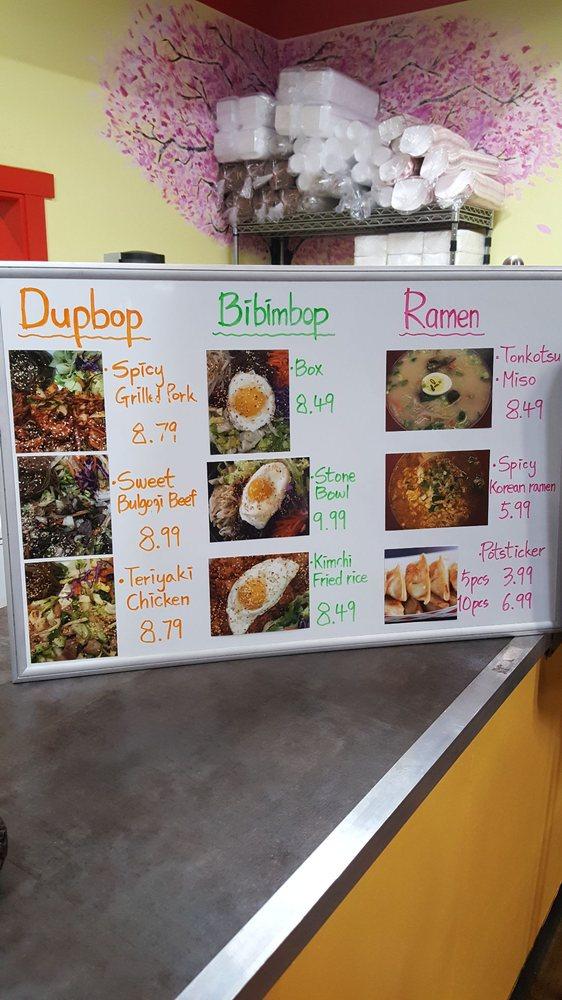 Dupbop
· Spicy
Grilled Pork
8.79
· Sweet
Bulgogi Beef
8.99
· Teriyaki
Chicken
8.79
Bibimbop
· Box
8.49
· Stone
Bowl
9.99
· Kimchi
Fried rice
8.49
Ramen
· Tonkotsu
· Miso
8.49
· Spicy
Korean ramen
5.99
· Potsticker
5pcs 3.99
10pcs 6.99